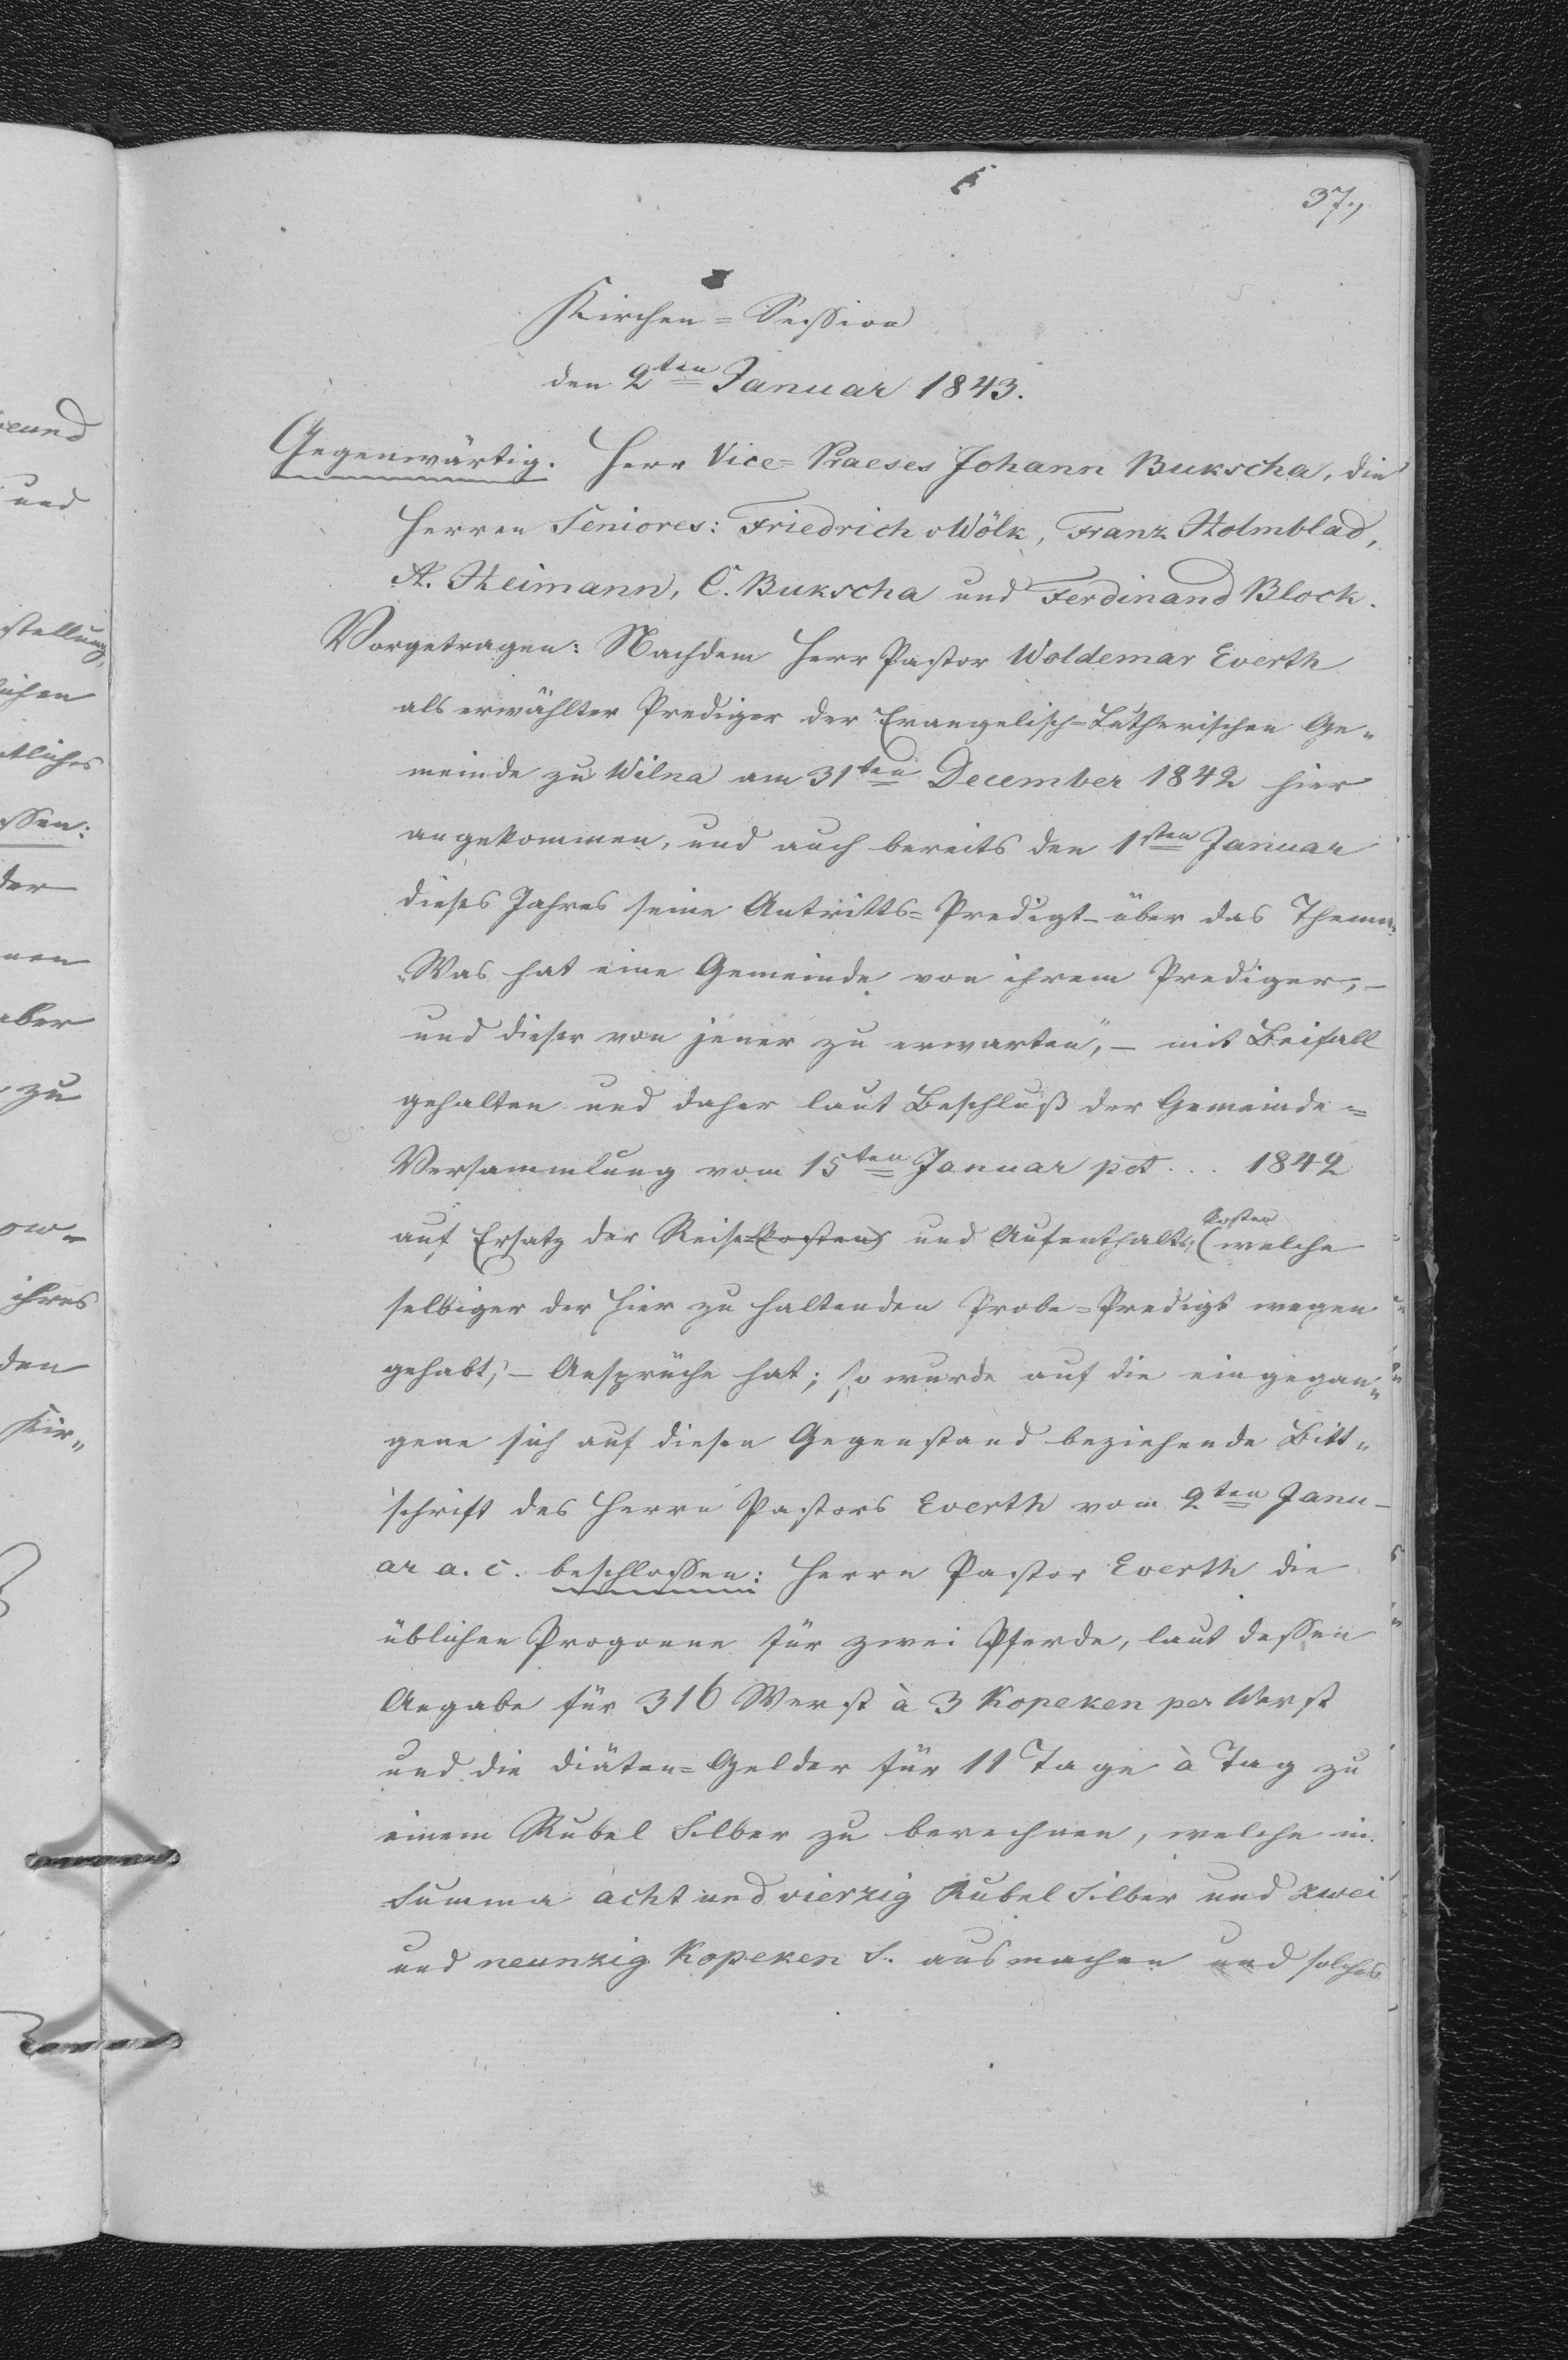 37.,
Kirchen-Session
den 2ten Januar 1843.
Gegenwärtig. Herr Vice-Praeses Johann Bukscha, die
Herren Seniores: Friedrich Wölk, Franz Holmblad,
A. Heimann, C. Bukscha und Ferdinand Block.
Vorgetragen: Nachdem Herr Pastor Woldemar Everth
als erwählter Prediger der Evangelisch-Lutherischen Ge„
meinde zu Wilna am 31ten December 1842 hier
angekommen, und auch bereits den 1sten Januar
dieses Jahres seine Antritts-Predigt über das Thema:
„Was hat eine Gemeinde von ihrem Prediger, –
und dieser von jener zu erwarten", – mit Beifall
gehalten und daher laut Beschluß der Gemeinde-
Versammlung vom 15ten Januar pct... 1842
auf Ersatz der Reisekosten und Aufenthalts-kosten (welche
selbiger der hier zu haltenden Probe-Predigt wegen
gehabt,) – Ansprüche hat; so wurde auf die eingegan„
gene sich auf diesen Gegenstand beziehende Bitt„
schrift des Herrn Pastors Everth vom 2ten Janu-
ar a. c. beschlossen: Herrn Pastor Everth die
üblichen Progonne für zwei Pferde, laut dessen
Angabe für 316 Werst à 3 Kopeken per Werst
und die Diäten-Gelder für 11 Tage à Tag zu
einem Rubel Silber zu berechnen, welche in
Summa acht und vierzig Rubel Silber und zwei
und neunzig Kopeken S. ausmachen und solches
und
stellung,
ssen:
der
nen
aber
zu
ow-
ihres
den
Kir„